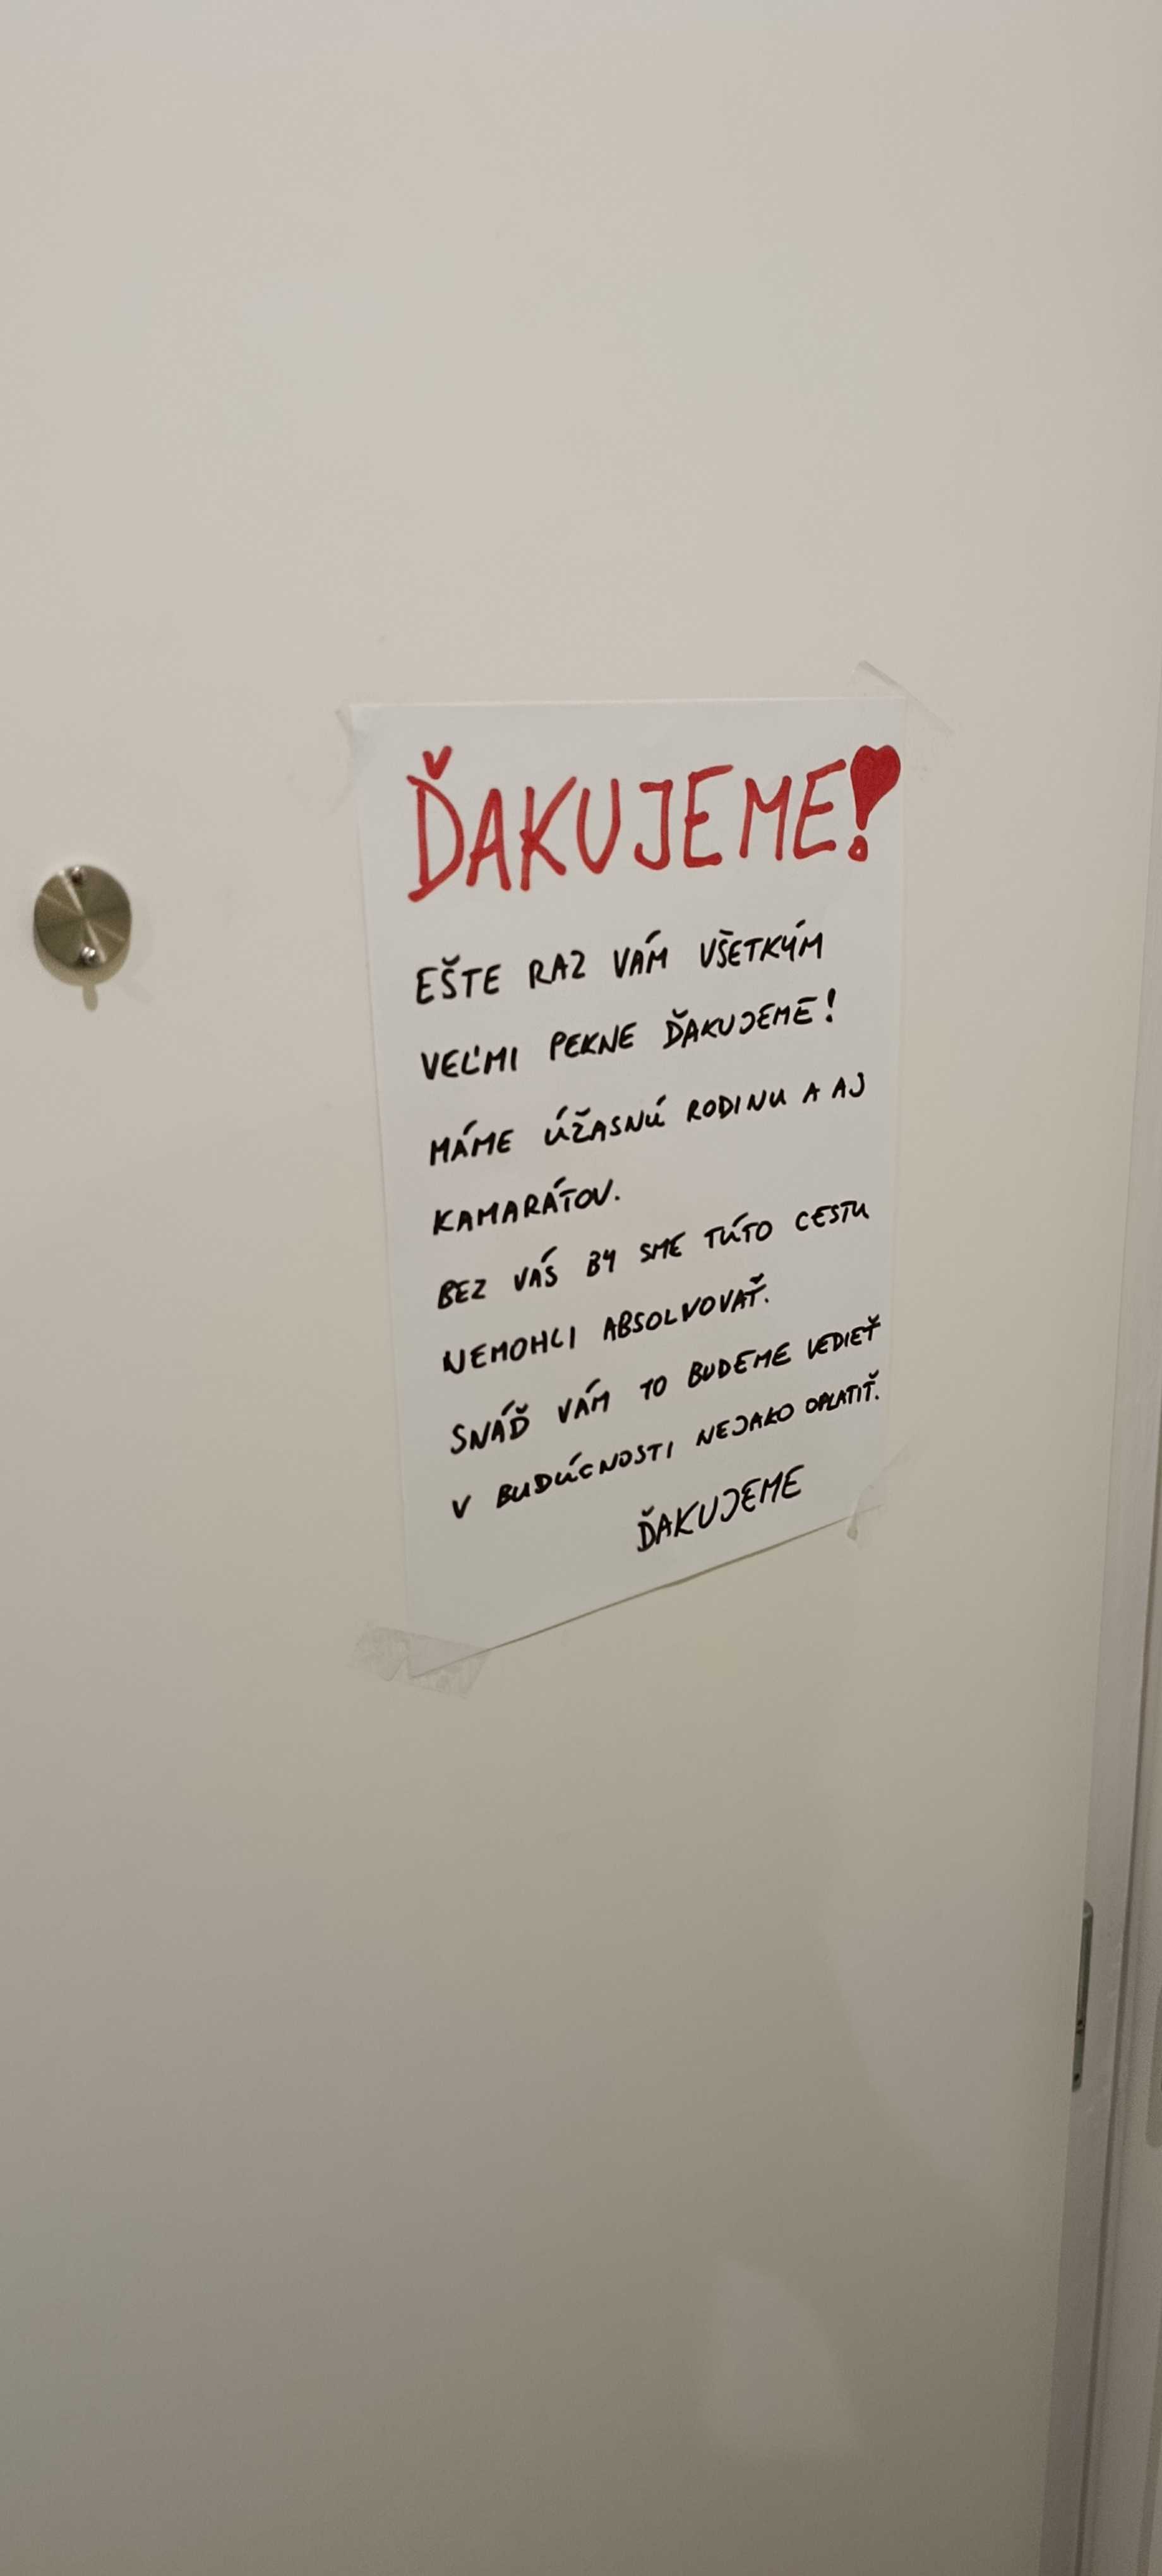 ĎAKUJEME!
EŠTE RAZ VÁM VŠETKÝM
VEĽMI PEKNE ĎAKUJEME!
MÁME ÚŽASNÚ RODINU A AJ
KAMARÁTOV.
BEZ VÁS BY SME TÚTO CESTU
NEMOHLI ABSOLVOVAŤ.
SNÁĎ VÁM TO BUDEME VEDIEŤ
V BUDÚCNOSTI NEJAKO OPLATIŤ.
ĎAKUJEME